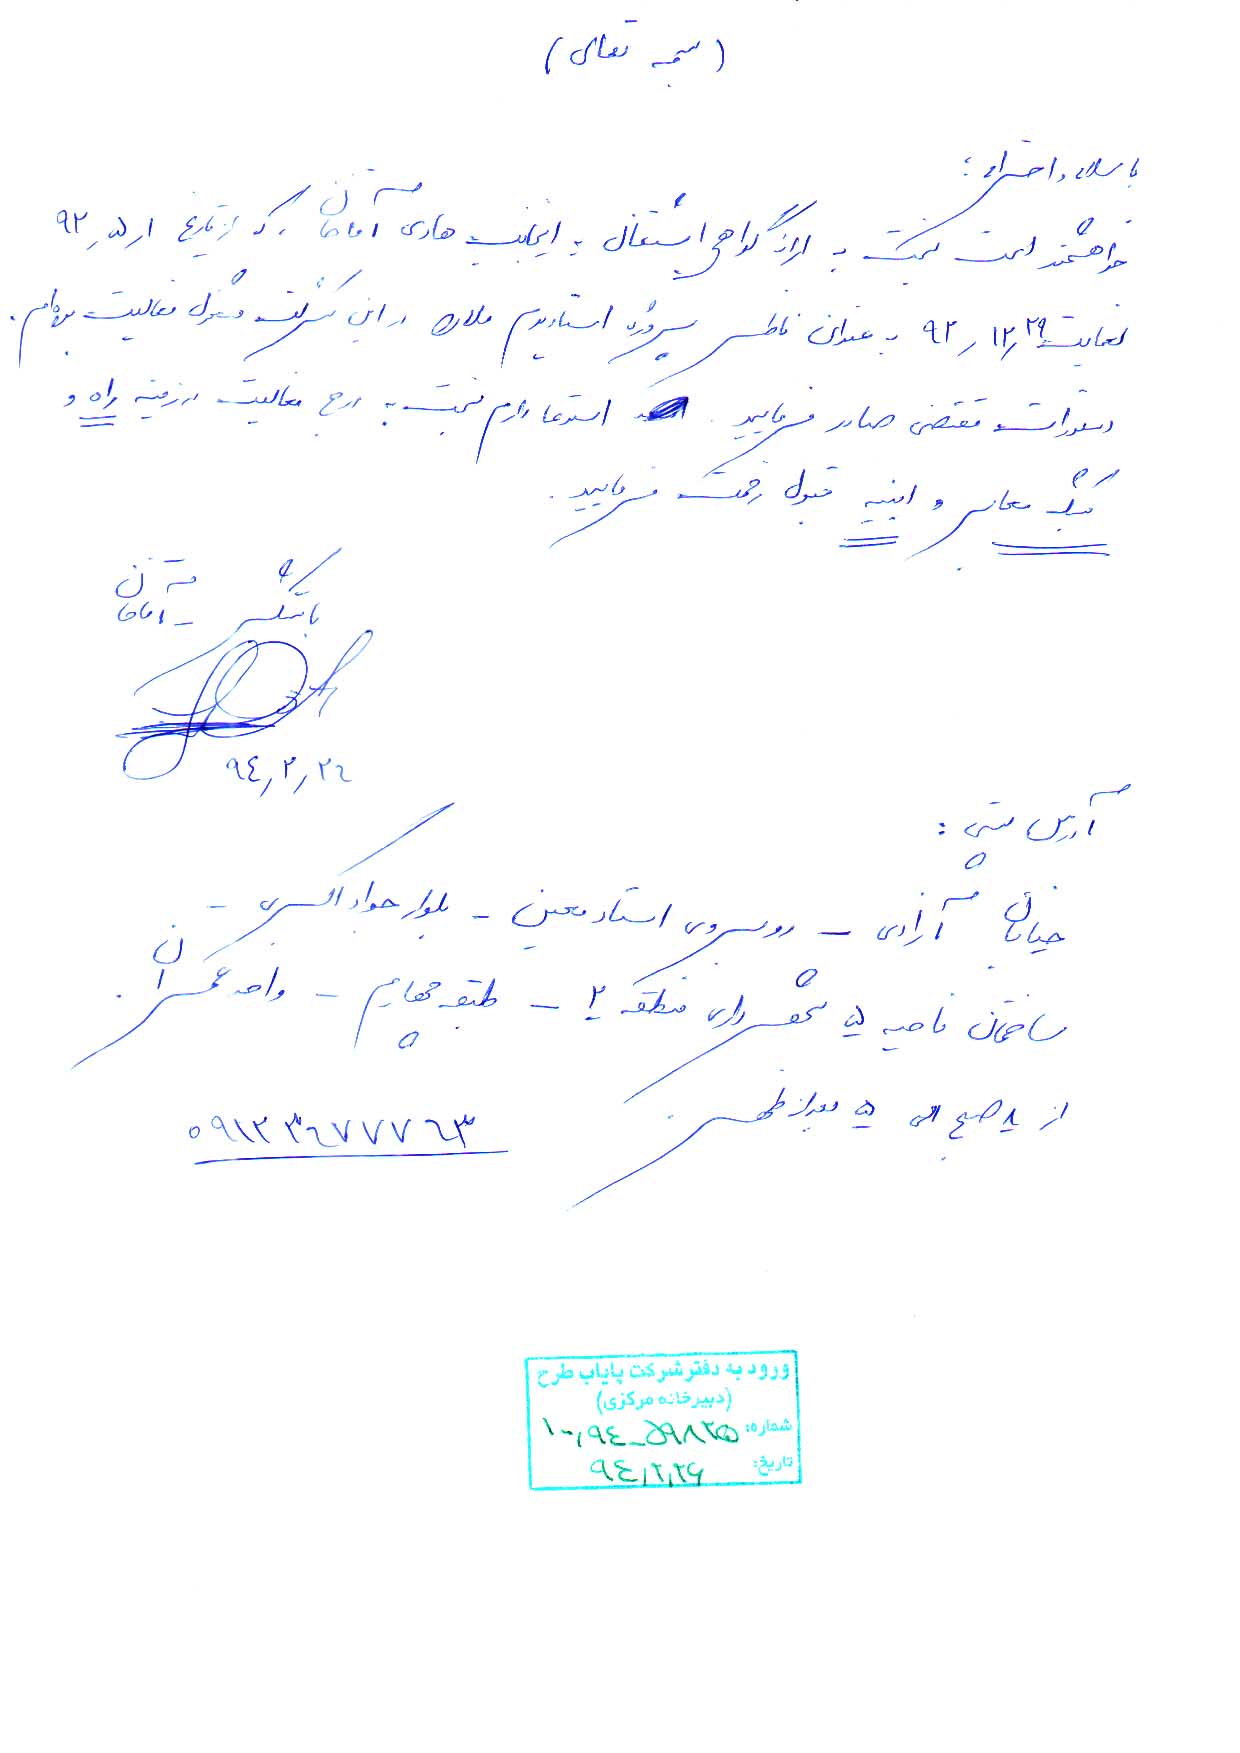 (بسمه تعالی)
با سلام و احترام ؛
خواهشمند است نسبت به ارائه گواهی اشتغال به اینجانب هادی آقاخان که از تاریخ ۹۲٫۵٫۱
لغایت ۹۲٫۱۲٫۲۹ به عنوان ناظر پروژه استادیوم ملارد در این شرکت مشغول فعالیت بوده‌ام .
دستورات مقتضی صادر فرمایید . استدعا دارم نسبت به درج فعالیت در زمینه راه و
شبکه معابر و ابنیه قبول زحمت فرمایید .
با تشکر – آقاخان
۹۴٫۲٫۲۶
آدرس پستی :
خیابان آزادی – روبروی استاد معین – بلوار جواد اکبری –
ساختمان ناحیه ۵ شهرداری منطقه ۲ – طبقه چهارم – واحد عمران .
از ۸ صبح الی ۵ بعدازظهر .
۰۹۱۲۳۶۷۷۷۶۳
ورود به دفتر شرکت پایاب طرح
(دبیرخانه مرکزی)
شماره: ۱۰٫۹۴_۵۹۸۲۵
تاریخ: ۹۴٫۲٫۲۶